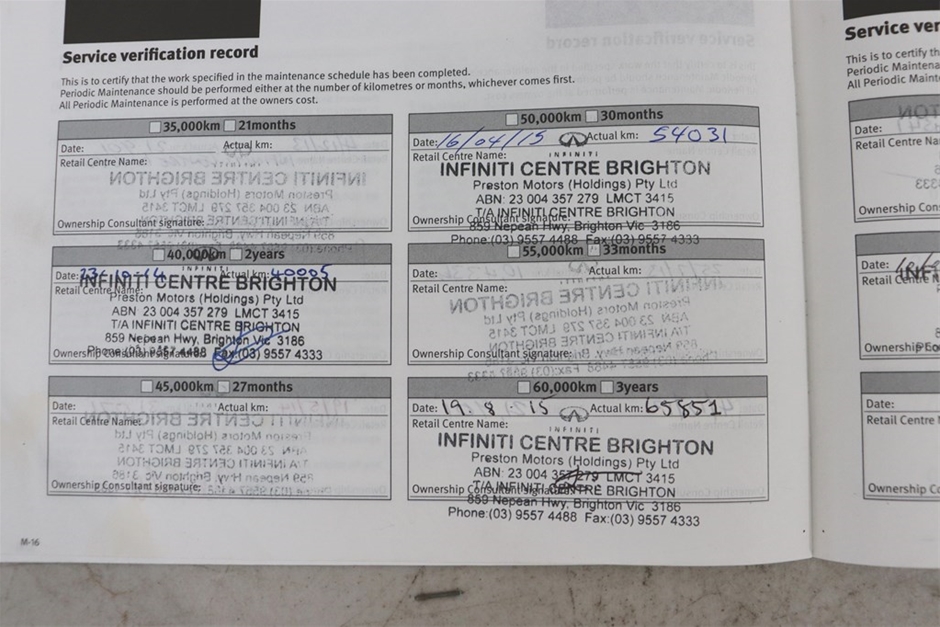 Service verification record
This is to certify that the work specified in the maintenance schedule has been completed.
Periodic Maintenance should be performed either at the number of kilometres or months, whichever comes first.
All Periodic Maintenance is performed at the owners cost.
35,000km 21months
Date: Actual km:
Retail Centre Name:
Ownership Consultant signature:
40,000km 2years
Date: 23/10/14 Actual km: 40005
Retail Centre Name:
INFINITI
INFINITI CENTRE BRIGHTON
Preston Motors (Holdings) Pty Ltd
ABN 23 004 357 279 LMCT 3415
T/A INFINITI CENTRE BRIGHTON
859 Nepean Hwy, Brighton Vic 3186
Phone:(03) 9557 4488 Fax:(03) 9557 4333
Ownership Consultant signature:
45,000km 27months
Date: Actual km:
Retail Centre Name:
Ownership Consultant signature:
50,000km 30months
Date: 16/04/15 Actual km: 54031
Retail Centre Name:
INFINITI
INFINITI CENTRE BRIGHTON
Preston Motors (Holdings) Pty Ltd
ABN: 23 004 357 279 LMCT 3415
T/A INFINITI CENTRE BRIGHTON
Ownership Consultant signature:
859 Nepean Hwy, Brighton Vic 3186
Phone:(03) 9557 4488 Fax:(03) 9557 4333
55,000km 33months
Date: Actual km:
Retail Centre Name:
Ownership Consultant signature:
60,000km 3years
Date: 19.8.15 Actual km: 65851
Retail Centre Name:
INFINITI
INFINITI CENTRE BRIGHTON
Preston Motors (Holdings) Pty Ltd
ABN: 23 004 357 279 LMCT 3415
T/A INFINITI CENTRE BRIGHTON
Ownership Consultant signature:
859 Nepean Hwy, Brighton Vic 3186
Phone:(03) 9557 4488 Fax:(03) 9557 4333
M-16
Service ver
This is to certify th
Periodic Maintena
All Periodic Maint
Date:
Retail Centre Na
Ownership Con
Date:
Retail Centre N
INF
Ownership
Date:
Retail Centre
Ownership C